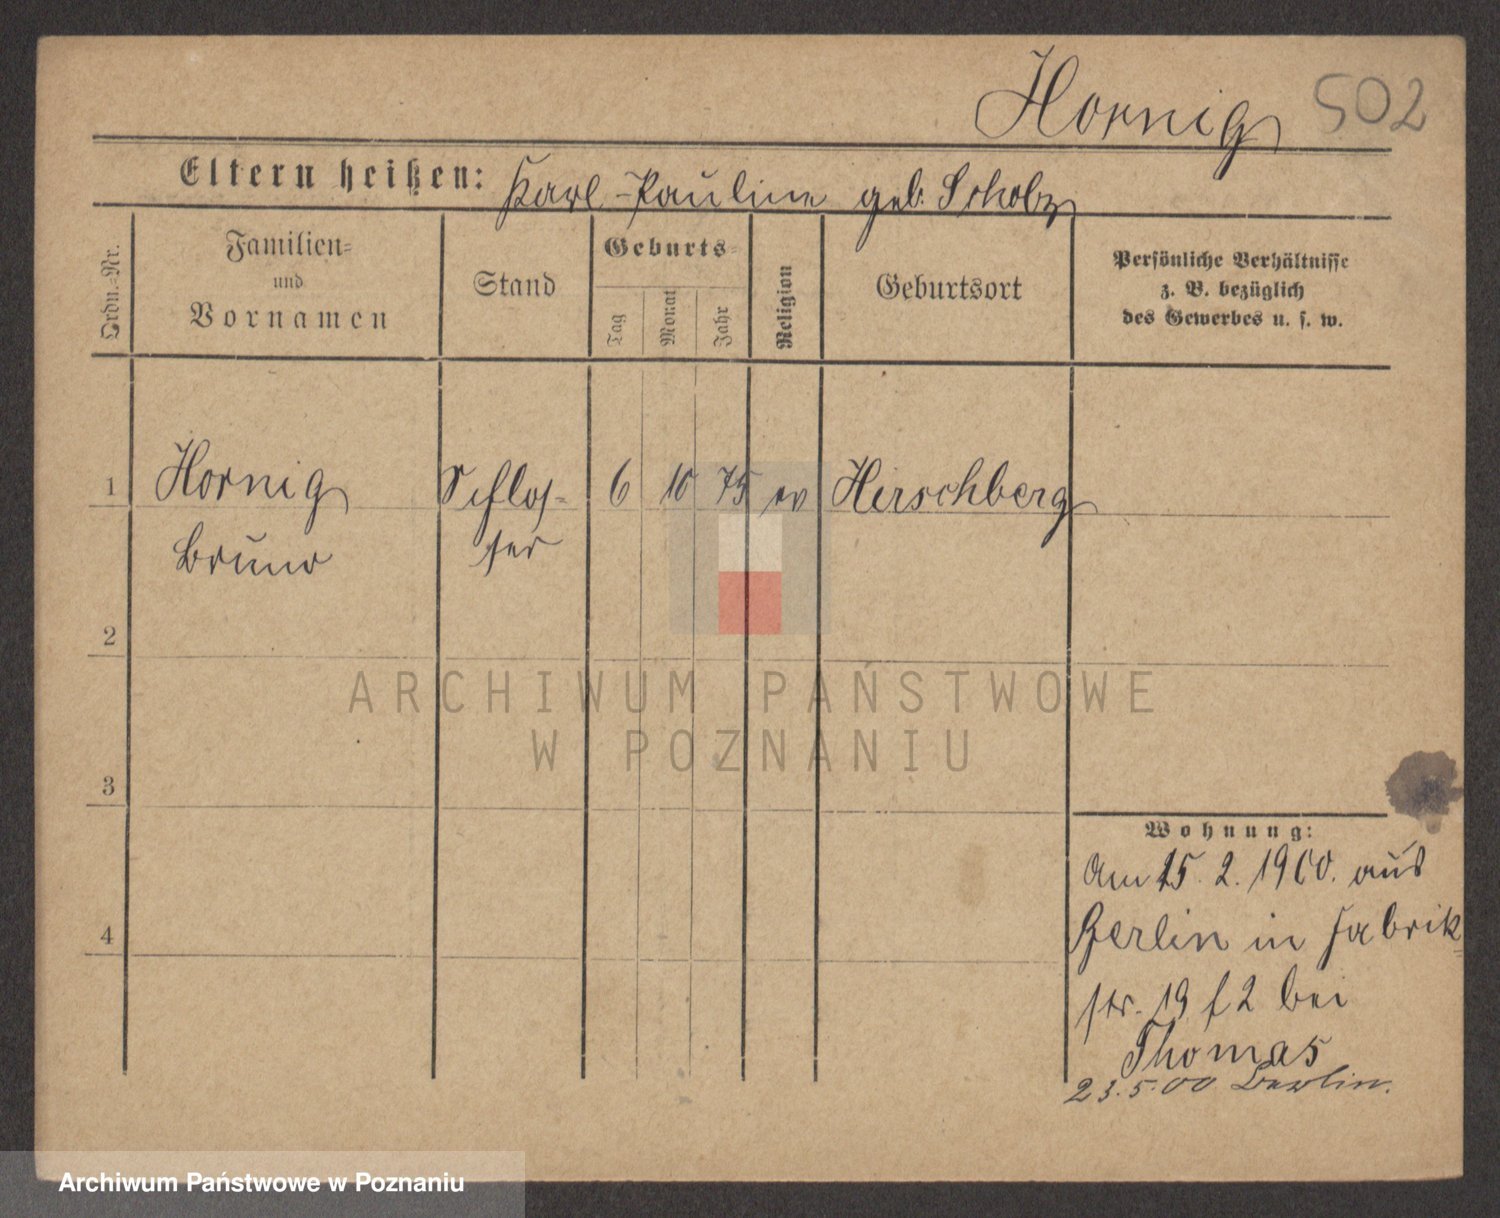 Hornig 502
Eltern heißen: Karl - Pauline geb. Scholz
Ordn.-Nr.
Familien-
und
Vornamen
Stand
Geburts-
Tag
Monat
Jahr
Religion
Geburtsort
Persönliche Verhältnisse
z. B. bezüglich
des Gewerbes u. s. w.
1 Hornig Schlos- 6 10 75 ev Hirschberg
Bruno ser
2
ARCHIWUM PAŃSTWOWE
W POZNANIU
3
Wohnung:
Am 15. 2. 1900. aus
4
Berlin in Fabrik-
str. 19 f 2 bei
Thomas
23.5.00 Berlin.
Archiwum Państwowe w Poznaniu